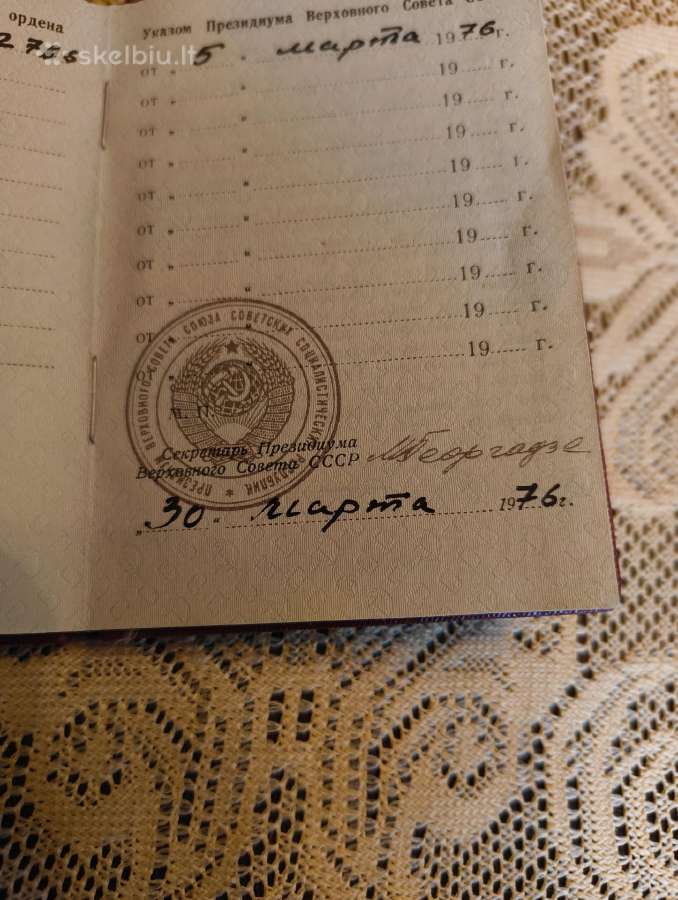 ордена
skelbiu.lt
Указом Президиума Верховного Совета
от „ 5 “ марта 1976 г.
от „ “ 19 г.
от „ “ 19 г.
от „ “ 19 г.
от „ “ 19 г.
от „ “ 19 г.
от „ “ 19 г.
от „ “ 19 г.
от „ “ 19 г.
от „ “ 19 г.
ПРЕЗИДИУМ ВЕРХОВНОГО СОВЕТА СОЮЗА СОВЕТСКИХ СОЦИАЛИСТИЧЕСКИХ РЕСПУБЛИК
М. П.
Секретарь Президиума
Верховного Совета СССР М Георгадзе
„ 30 “ марта 1976 г.